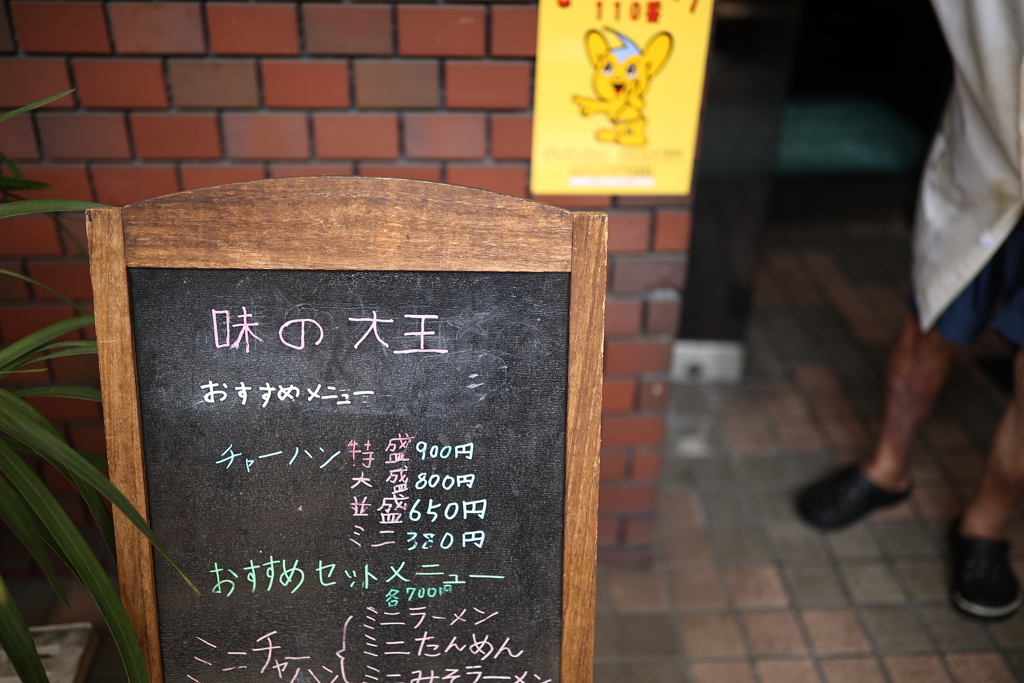 110番
味の大王
おすすめメニュー
チャーハン 特盛 900円
大盛 800円
並盛 650円
ミニ 380円
おすすめセットメニュー
各700円
ミニラーメン
ミニチャーハン { ミニたんめん
ミニみそラーメン